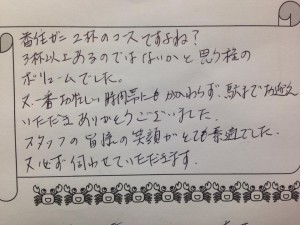 番住ガニ2杯のコースですよね?
3杯以上あるのではないかと思う程の
ボリュームでした。
又一番お忙しい時間帯にもかかわらず、駅まで お迎え
いただき ありがとうございました。
スタッフの皆様の笑顔がとても素適でした。
又必ず伺わせていただきます。